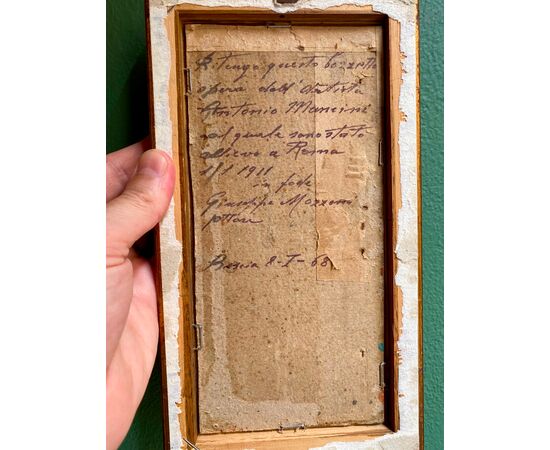 Ritengo questo bozzetto
opera dell'Artista
Antonio Mancini
del quale sono stato
allievo a Roma
1911
in fede
Giuseppe Mozzoni
pittore
8-I-68